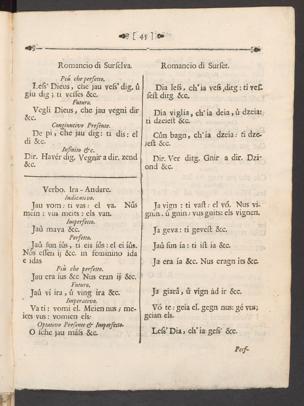 [ 45 ]
Romancio di Surselva.
Più che perfetto.
Less' Dieus, che jau vess' dig, û
giu dig; ti vesses &c.
Futuro.
Vegli Dieus, che jau vegni dir
&c.
Congiuntivo Presente.
De pi, che jau dig: ti dis: el
di &c.
Infinito &c.
Dir. Havér dig. Vegnir a dir. zend
&c.
Verbo. Ira - Andare.
Indicativo.
Jau vom: ti vas: el va. Nûs
mein: vus meits: els van.
Imperfetto.
Jaû mava &c.
Perfetto.
Jaû sun iûs, ti eis iûs: el ei iûs.
Nûs essen ij &c. in feminino ida
e idas
Più che perfetto.
Jau era ius &c Nus eran ij &c.
Futuro.
Jaû vi ira, û ving ira &c.
Imperativo.
Va ti: vomi el. Meien nus; me-
iets vus: vomien els.
Optativo Presente & Imperfetto.
O sche jau mass &c.
Romancio di Surset.
Dia less, ch'ia vess, ditg: ti vess.
sest ditg &c.
Dia viglia, ch'ia deia, û dzeia:
ti dzeiest &c.
Cûn bagn, ch'ia dzeia: ti dze-
jest &c.
Dir. Ver ditg. Gnir a dir. Dzi-
ond &c.
Ja vign: ti vast: el vo. Nus vi-
gnin. û gnin: vus gnits: els vignen.
Ja geva: ti gevest &c.
Jaû sun ia: ti ist ia &c.
Ja era ia &c. Nus eragn its &c.
Ja giarâ, û vign ad ir &c.
Vó te: geia el. gegn nus: gé vus;
geian els.
Less' Dia, ch'ia gess' &c.
Perf-